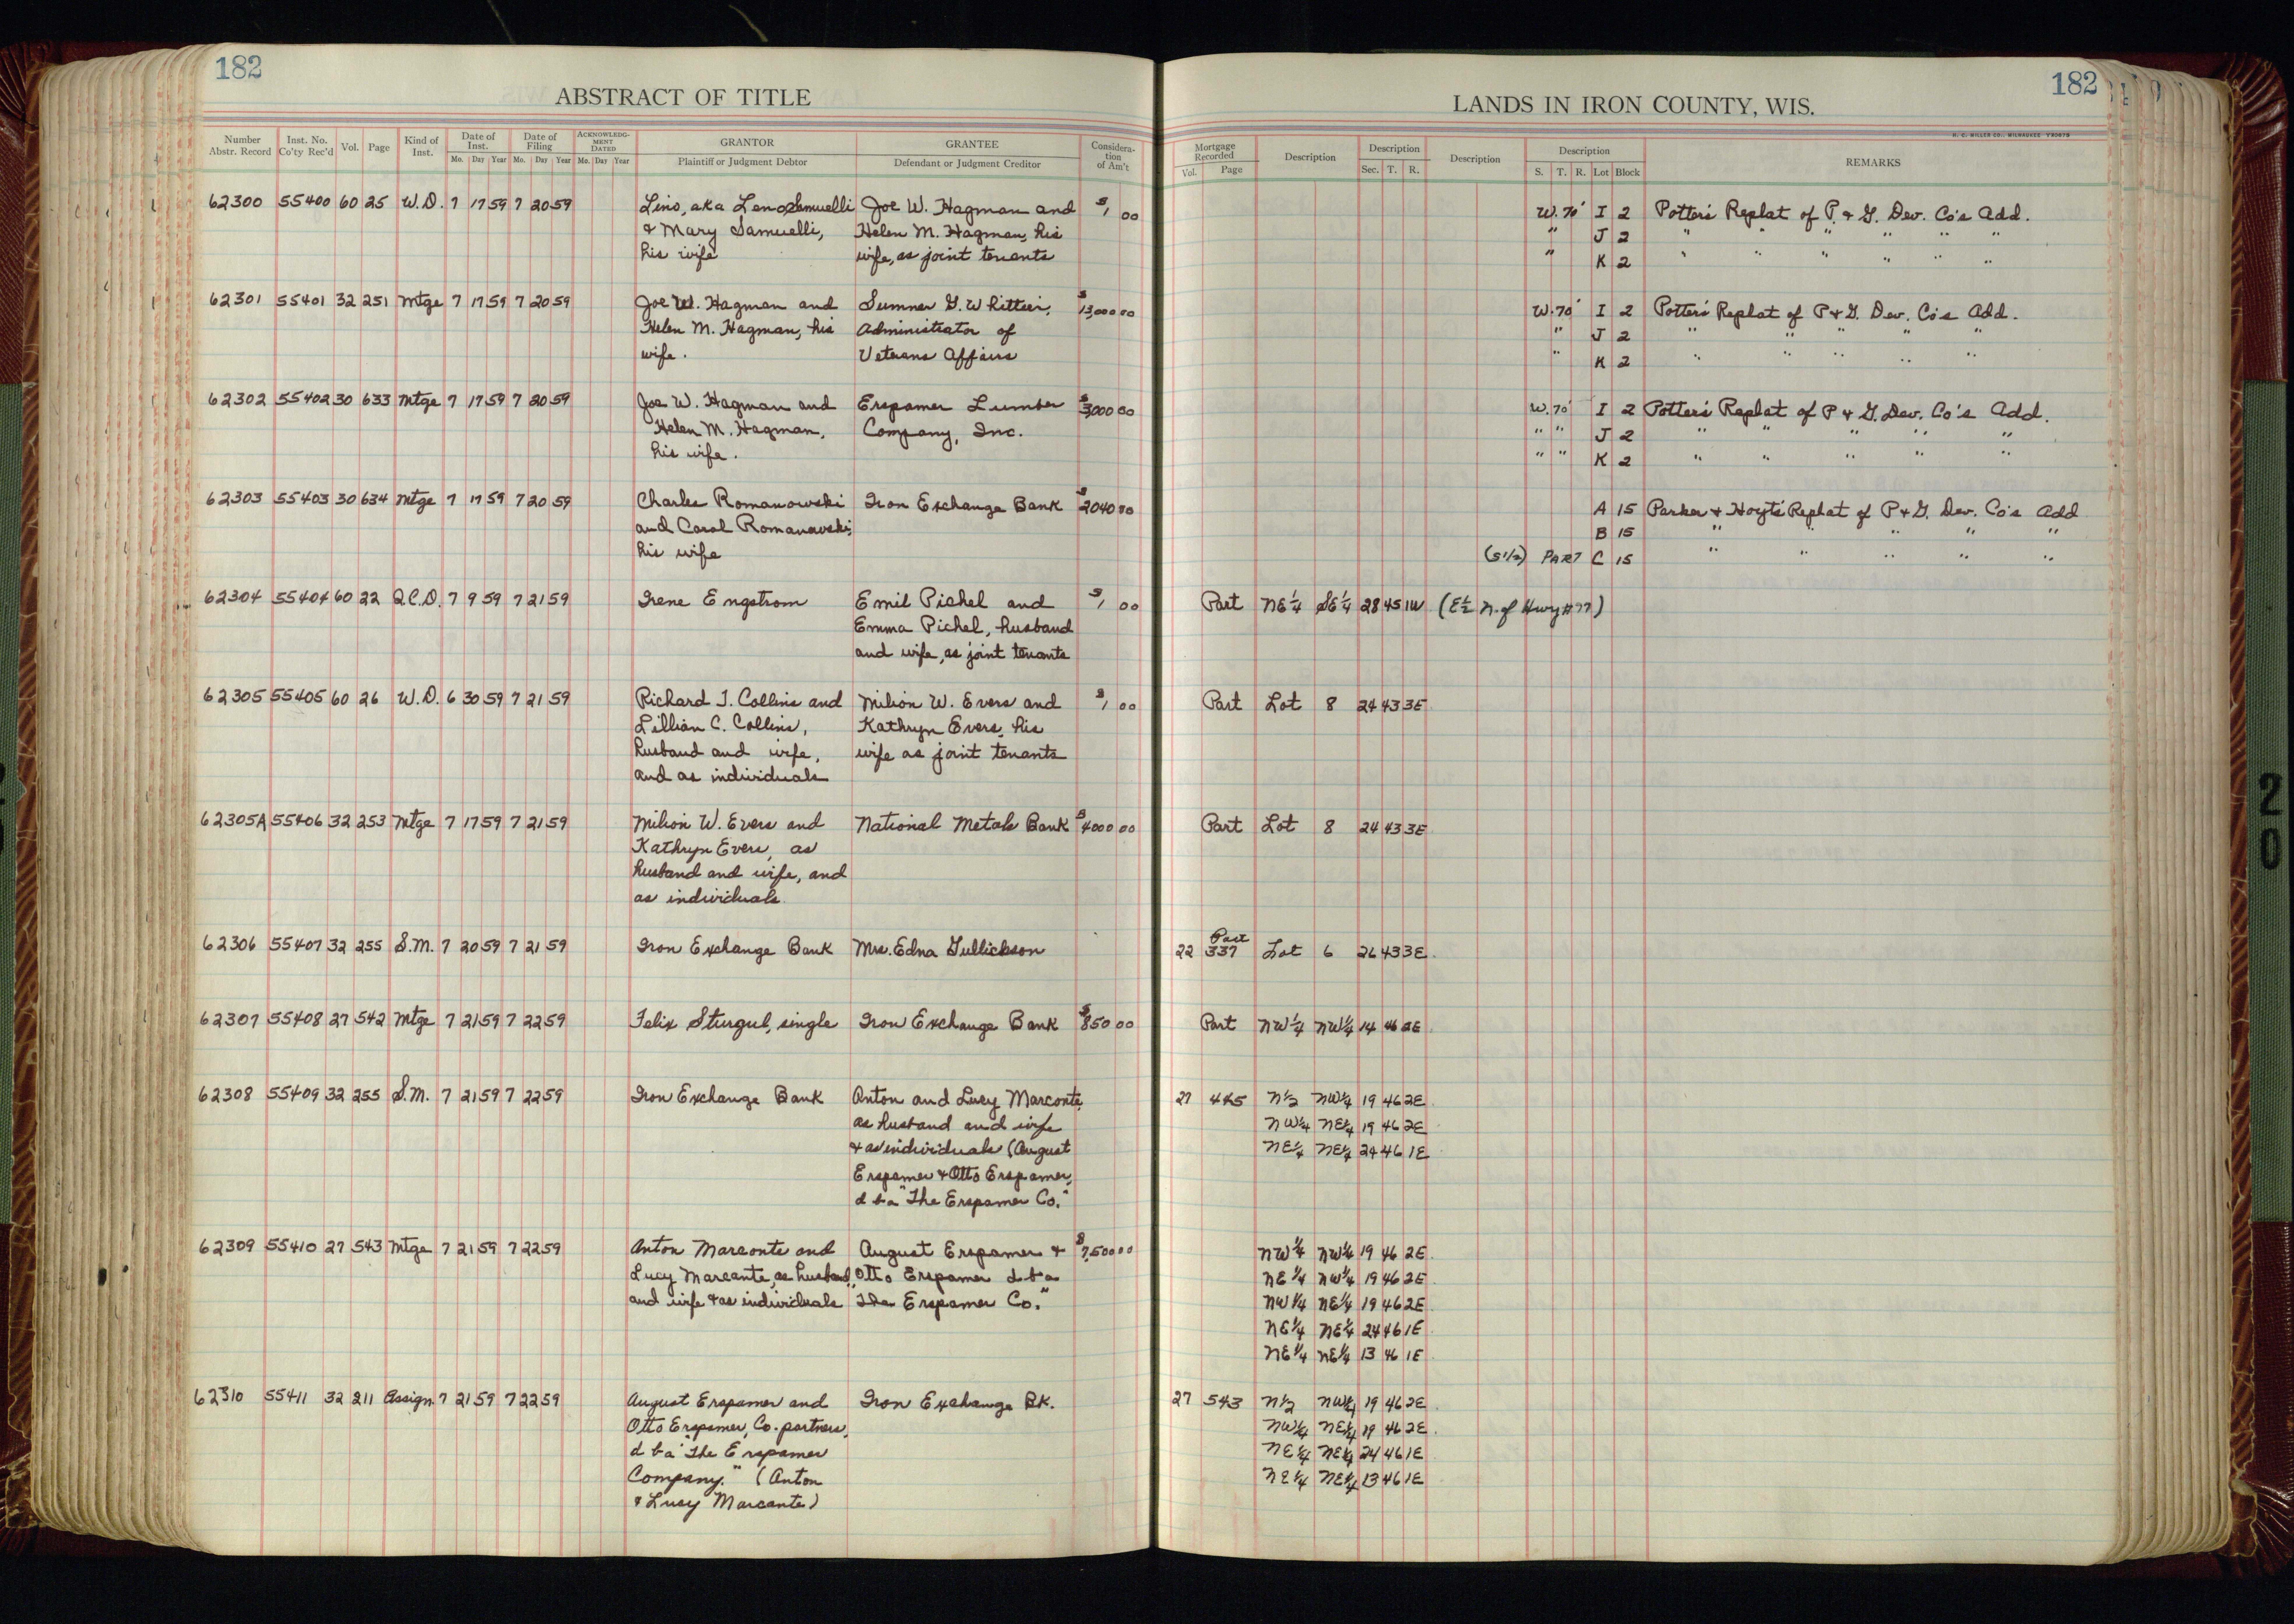 182
ABSTRACT OF TITLE
Number Abstr. Record | Inst. No. Co'ty Rec'd | Vol. | Page | Kind of Inst. | Date of Inst. Mo. Day Year | Date of Filing Mo. Day Year | ACKNOWLEDGMENT DATED Mo. Day Year | GRANTOR Plaintiff or Judgment Debtor | GRANTEE Defendant or Judgment Creditor | Consideration of Am't
182
LANDS IN IRON COUNTY, WIS.
H. C. MILLER CO., MILWAUKEE
Mortgage Recorded Vol. Page | Description | Description Sec. T. R. | Description | Description S. T. R. Lot Block | REMARKS
62300 55400 60 25 W.D. 7 17 59 7 20 59 Lino, aka Leno Samuelli Joe W. Hagman and $1 00 W. 70' I 2 Potter's Replat of P. & G. Dev. Co's Add.
& Mary Samuelli, Helen M. Hagman, his " J 2 " " " " " "
his wife wife, as joint tenants " K 2 " " " " " "
62301 55401 32 251 Mtge 7 17 59 7 20 59 Joe W. Hagman and Sumner G. Whittier, $13,000 00 W. 70' I 2 Potter's Replat of P & G. Dev. Co's Add.
Helen M. Hagman, his Administrator of " J 2 " " " " "
wife. Veterans Affairs " K 2 " " " " "
62302 55402 30 633 Mtge 7 17 59 7 20 59 Joe W. Hagman and Erspamer Lumber $3,000 00 W. 70' I 2 Potter's Replat of P & G. Dev. Co's Add.
Helen M. Hagman, Company, Inc. " " J 2 " " " " "
his wife. " " K 2 " " " " "
62303 55403 30 634 Mtge 7 17 59 7 20 59 Charles Romanowski Iron Exchange Bank $2040 00 A 15 Parker & Hoyt's Replat of P & G. Dev. Co's Add
and Carol Romanowski, B 15 " " " " "
his wife (S 1/2) PART C 15 " " " " "
62304 55404 60 22 Q.C.D. 7 9 59 7 21 59 Irene Engstrom Emil Pichel and $1 00 Part NE 1/4 SE 1/4 28 45 1W (E 1/2 N. of Hwy #77)
Emma Pichel, husband
and wife, as joint tenants
62305 55405 60 26 W.D. 6 30 59 7 21 59 Richard J. Collins and Milion W. Evers and $1 00 Part Lot 8 24 43 3E
Lillian C. Collins, Kathryn Evers, his
husband and wife, wife as joint tenants
and as individuals
62305A 55406 32 253 Mtge 7 17 59 7 21 59 Milion W. Evers and National Metals Bank $4000 00 Part Lot 8 24 43 3E
Kathryn Evers, as
husband and wife, and
as individuals.
62306 55407 32 255 S.M. 7 20 59 7 21 59 Iron Exchange Bank Mrs. Edna Gullickson 22 337 Part Lot 6 26 43 3E
62307 55408 27 542 Mtge 7 21 59 7 22 59 Felix Sturgul, single Iron Exchange Bank $850 00 Part NW 1/4 NW 1/4 14 46 2E
62308 55409 32 255 S.M. 7 21 59 7 22 59 Iron Exchange Bank Anton and Lucy Marconte, 27 445 N 1/2 NW 1/4 19 46 2E
as husband and wife NW 1/4 NE 1/4 19 46 2E
& as individuals (August NE 1/4 NE 1/4 24 46 1E
Erspamer & Otto Erspamer,
d b a "The Erspamer Co."
62309 55410 27 543 Mtge 7 21 59 7 22 59 Anton Marconte and August Erspamer & $7,500 00 NW 1/4 NW 1/4 19 46 2E
Lucy Marcante, as husband, Otto Erspamer d b a NE 1/4 NW 1/4 19 46 2E
and wife & as individuals "The Erspamer Co." NW 1/4 NE 1/4 19 46 2E
NE 1/4 NE 1/4 24 46 1E
NE 1/4 NE 1/4 13 46 1E
62310 55411 32 211 Assign. 7 21 59 7 22 59 August Erspamer and Iron Exchange BK. 27 543 N 1/2 NW 1/4 19 46 2E
Otto Erspamer, Co-partners, NW 1/4 NE 1/4 19 46 2E
d b a "The Erspamer NE 1/4 NE 1/4 24 46 1E
Company." (Anton NE 1/4 NE 1/4 13 46 1E
& Lucy Marcante)
2
0